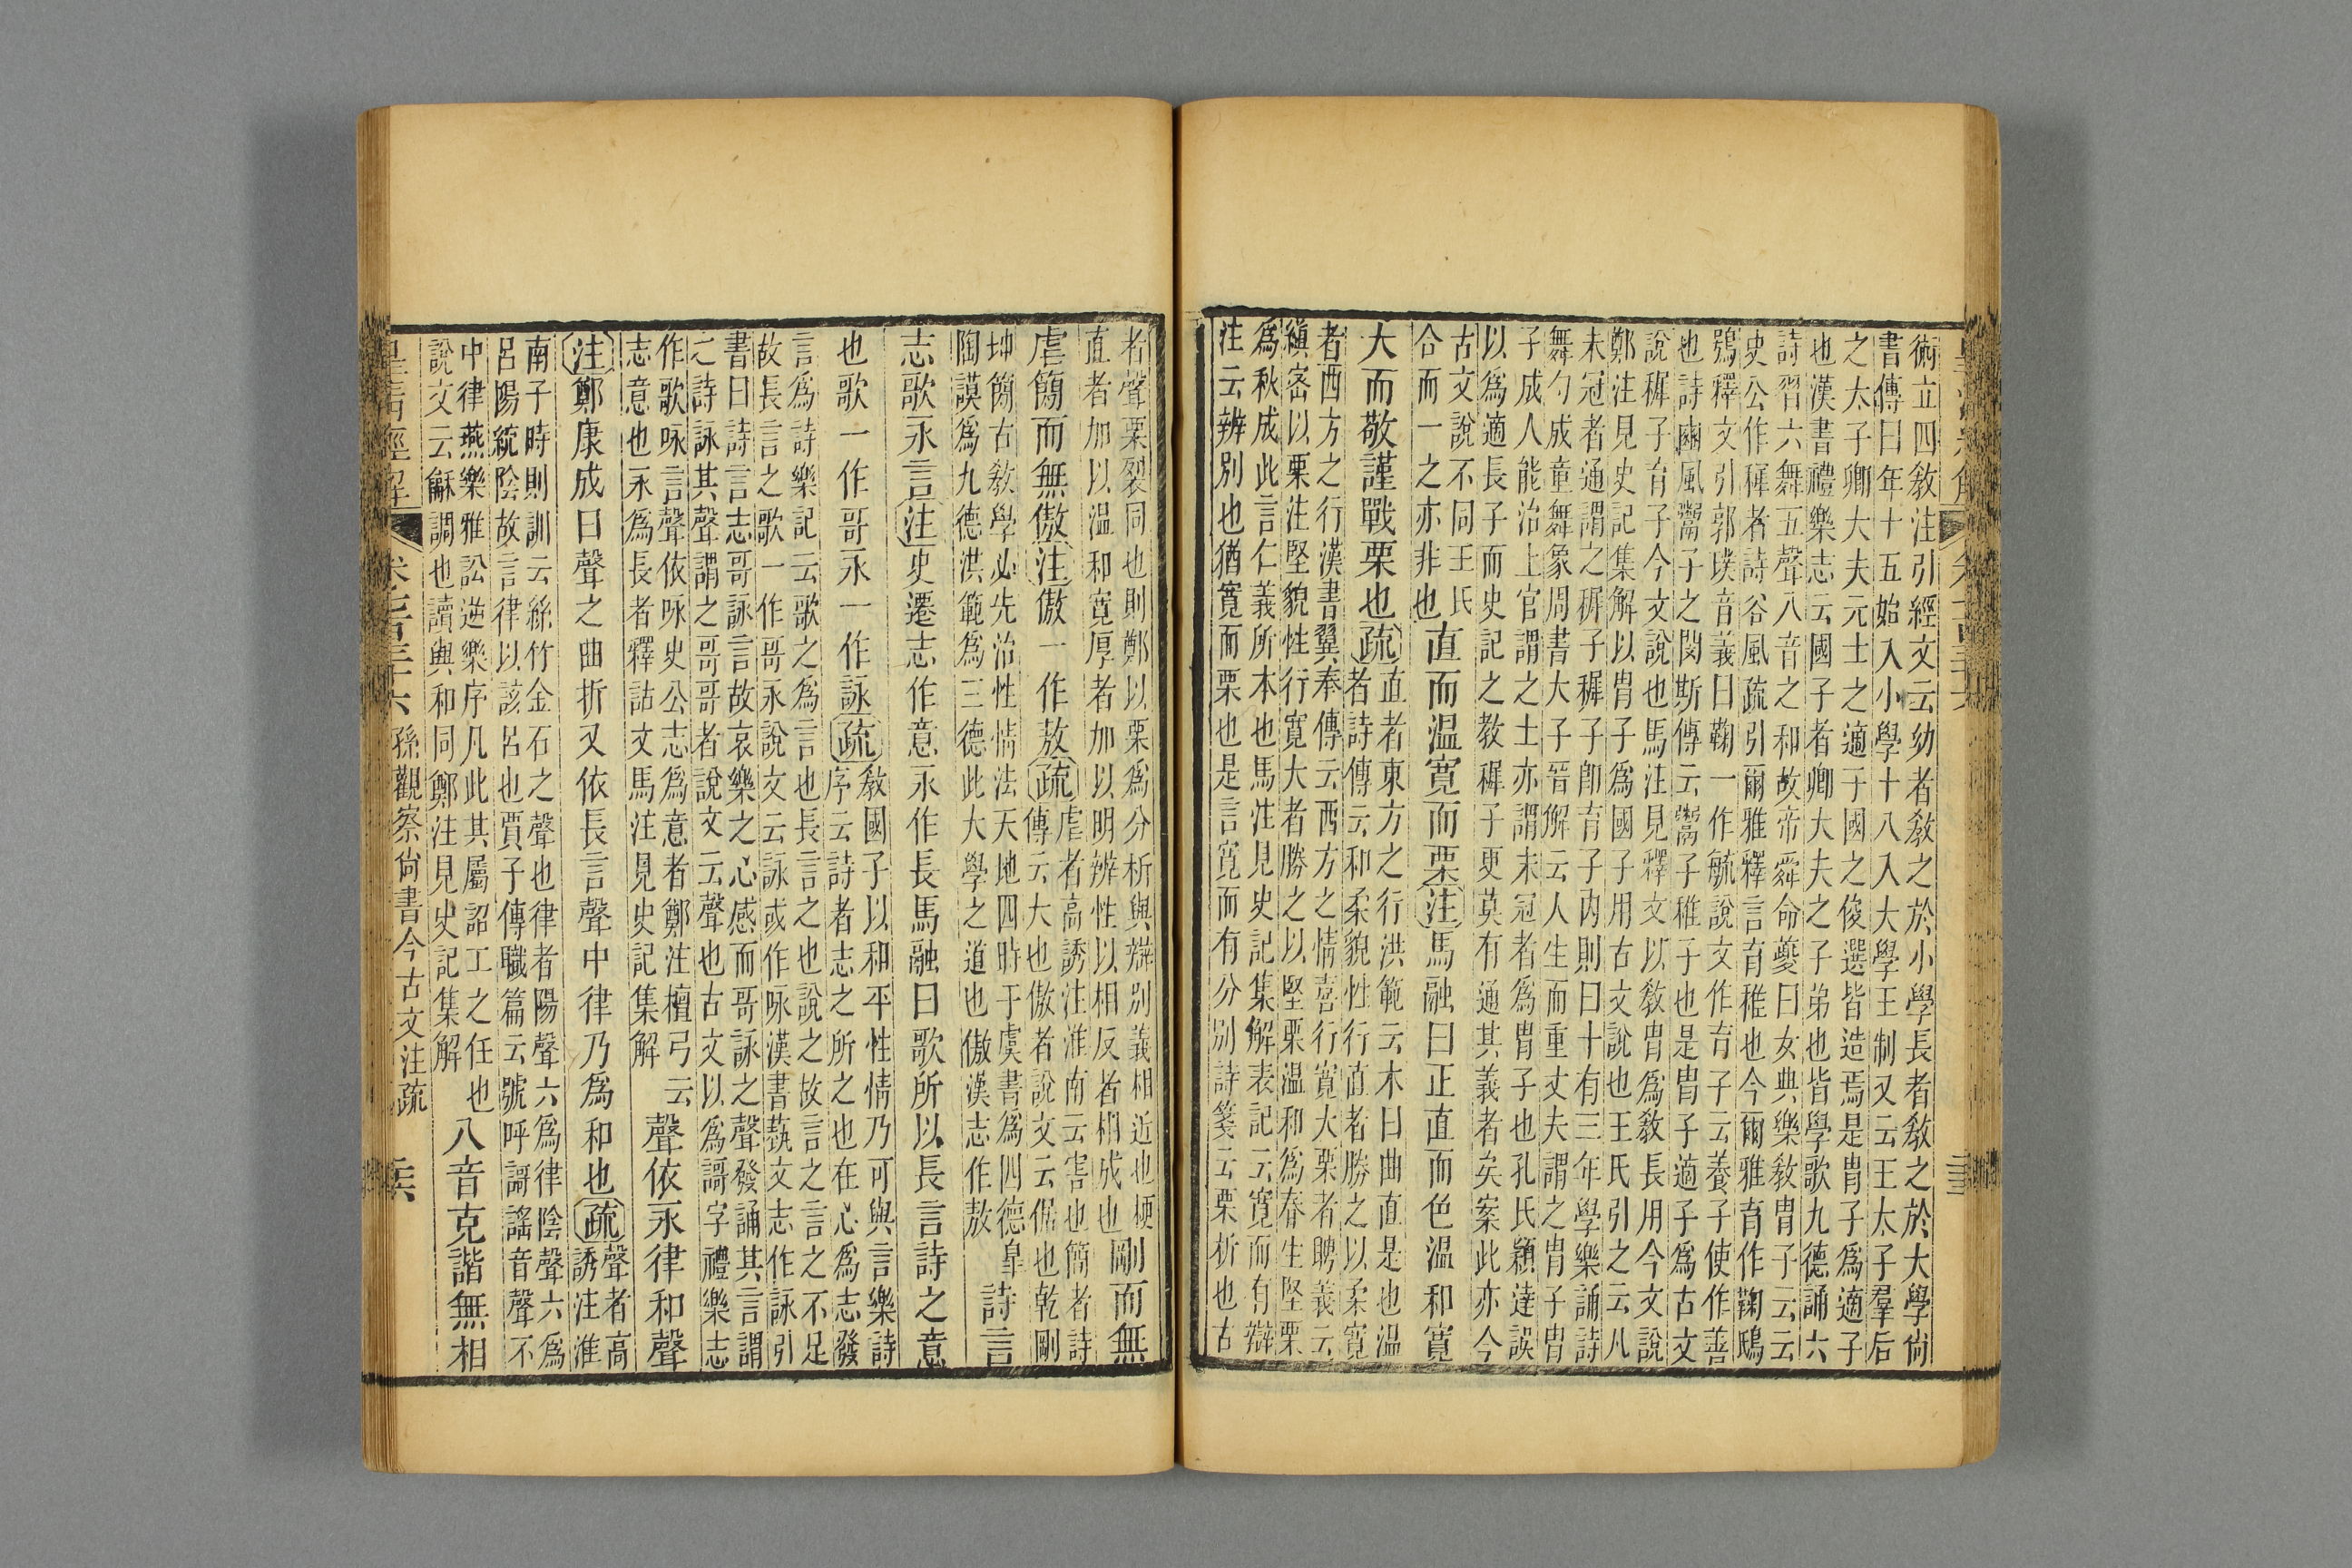 術立四敎注引經文云幼者敎之於小學長者敎之於大學尙
書傳曰年十五始入小學十八入大學王制又云王太子羣后
之太子卿大夫元士之適子國之俊選皆造焉是胄子爲適子
也漢書禮樂志云國子者卿大夫之子弟也皆學歌九德誦六
詩習六舞五聲八音之和故帝舜命夔曰女典樂敎胄子云云
史公作穉者詩谷風疏引爾雅釋言育稚也今爾雅育作鞠鴟
鴞釋文引郭璞音義曰鞠一作毓說文作育子云養子使作善
也詩豳風鬻子之閔斯傳云鬻子稚子也是胄子適子爲古文
說穉子育子今文說也馬注見釋文以敎胄爲敎長用今文說
鄭注見史記集解以胄子爲國子用古文說也王氏引之云凡
未冠者通謂之穉子穉子卽育子內則曰十有三年學樂誦詩
舞勺成童舞象周書大子晉解云人生而重丈夫謂之胄子胄
子成人能治上官謂之士亦謂未冠者爲胄子也孔氏穎達誤
以爲適長子而史記之敎穉子更莫有通其義者矣案此亦今
古文說不同王氏
合而一之亦非也直而温寬而栗注馬融曰正直而色温和寬
大而敬謹戰栗也疏直者東方之行洪範云木曰曲直是也温
者詩傳云和柔貌性行直者勝之以柔寬
者西方之行漢書翼奉傳云西方之情喜行寬大栗者聘義云
縝密以栗注堅貌性行寬大者勝之以堅栗温和爲春生堅栗
爲秋成此言仁義所本也馬注見史記集解表記云寬而有辯
注云辨別也猶寬而栗也是言寬而有分別詩箋云栗析也古
者聲栗裂同也則鄭以栗爲分析與辯別義相近也梗
直者加以温和寬厚者加以明辨性以相反者相成也剛而無
虐簡而無傲注傲一作敖疏虐者高誘注淮南云害也簡者詩
傳云大也傲者說文云倨也乾剛
坤簡古敎學必先治性情法天地四時于虞書爲四德臯
陶謨爲九德洪範爲三德此大學之道也傲漢志作敖詩言
志歌永言注史遷志作意永作長馬融曰歌所以長言詩之意
也歌一作哥永一作詠疏敎國子以和平性情乃可與言樂詩
序云詩者志之所之也在心爲志發
言爲詩樂記云歌之爲言也長言之也說之故言之言之不足
故長言之歌一作哥永說文云詠或作咏漢書蓺文志作詠引
書曰詩言志哥詠言故哀樂之心感而哥詠之聲發誦其言謂
之詩詠其聲謂之哥哥者說文云聲也古文以爲謌字禮樂志
作歌咏言聲依咏史公志爲意者鄭注檀弓云
志意也永爲長者釋詁文馬注見史記集解聲依永律和聲
注鄭康成曰聲之曲折又依長言聲中律乃爲和也疏聲者高
誘注淮
南子時則訓云絲竹金石之聲也律者陽聲六爲律陰聲六爲
呂陽統陰故言律以該呂也賈子傳職篇云號呼謌謠音聲不
中律燕樂雅訟逆樂序凡此其屬詔工之任也
說文云龢調也讀與和同鄭注見史記集解八音克諧無相
皇淸經解 卷七百三十六 孫觀察尙書今古文注疏